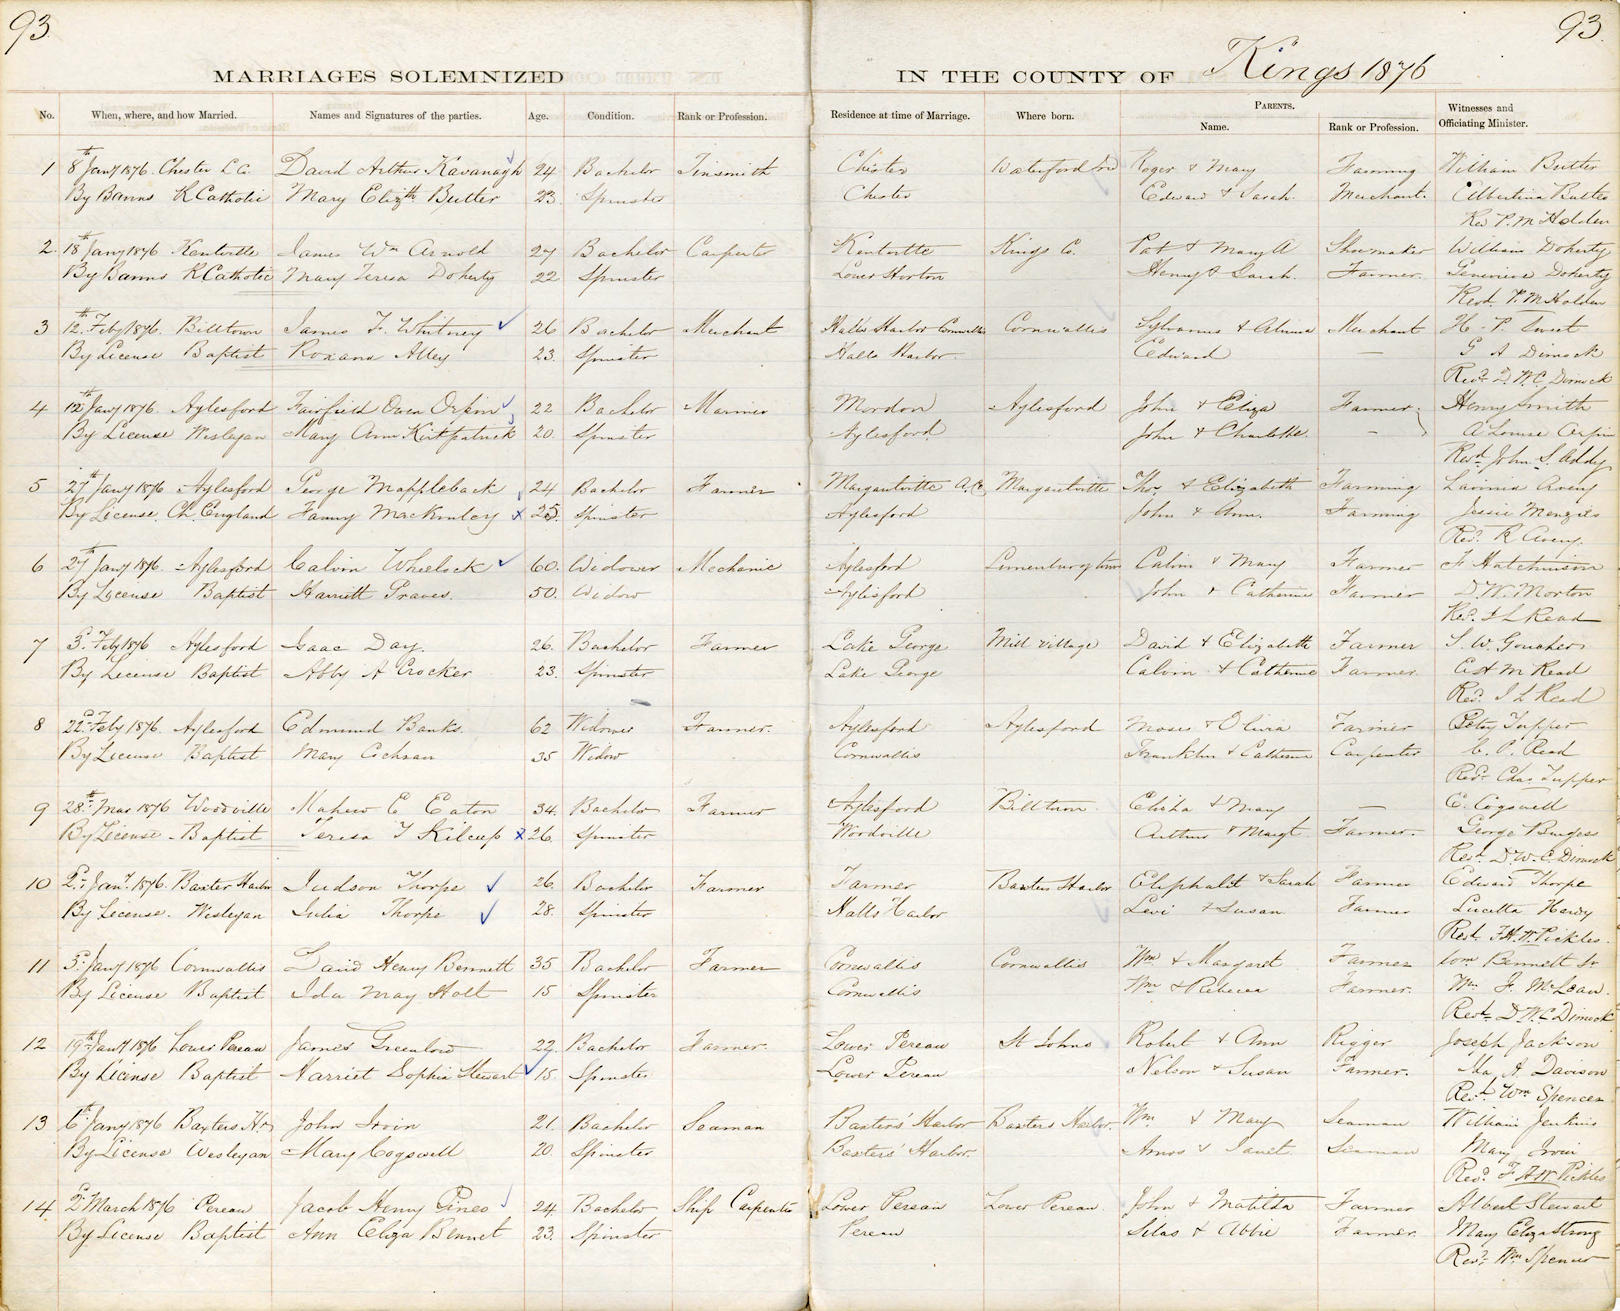 93
93
MARRIAGES SOLEMNIZED IN THE COUNTY OF Kings 1876
No. When, where, and how Married. Names and Signatures of the parties. Age. Condition. Rank or Profession. Residence at time of Marriage. Where born. PARENTS. Name. Rank or Profession. Witnesses and Officiating Minister.
1 8th Jany 1876. Chester David Arthur Kavanagh 24 Bachelor Tinsmith Chester Waterford Roger & Mary Farming William Butler
By Banns R Catholic Mary Elizth Butler 23. Spinster Chester Edward & Sarah. Merchant. Albertina Butler
Rev P. M Holden
2. 18th Jany 1876 Kentville James Wm Arnold 27 Bachelor Carpenter Kentville Kings Co. Pat & Mary A Shoemaker William Doherty
By Banns R Catholic Mary Teresa Doherty 22 Spinster Lower Horton Henry & Sarah. Farmer. Genevieve Doherty
Revd. P. M Holden
3 12th Feby 1876. Billtown James F. Whitney 26 Bachelor Merchant Hall's Harbor Cornwallis Cornwallis Sylvanus & Merchant H. P. Sweet
By License Baptist Roxana Alley 23. Spinster Halls Harbor. Edward — G A Dimock
Revd. D. W. C. Dimock
4 12th Jany 1876. Aylesford Fairfield Owen Orpin 22 Bachelor Mariner Mordon Aylesford John & Eliza Farmer. Henry Smith
By License Wesleyan Mary Ann Kirkpatrick 20. Spinster Aylesford John & Charlotte. — A Louise Orpin
Revd. John S. Addy
5 27th Jany 1876 Aylesford George Mappleback 24 Bachelor Farmer Margaretville A. Co Margaretville Tho. & Elizabeth Farming Lavinia Avery
By License. Ch. England Fanny MacKinley x 25. Spinster Aylesford John & Ann. Farming Jessie Menzies
Revd. R Avery.
6 27th Jany 1876. Aylesford Calvin Wheelock 60. Widower Mechanic Aylesford Lunenburg town Calvin & Mary Farmer F Hutchinson
By License Baptist Harriett Graves. 50. Widow Aylesford John & Catherine Farmer D. W. Morton
Revd. I L Read
7 3d. Feby 1876 Aylesford Isaac Day. 26. Bachelor Farmer Lake George Mill Village David & Elizabeth Farmer S. W.
By License Baptist Abby A Crocker 23. Spinster Lake George Calvin & Catherine Farmer. E A M Read
Revd. I L Read
8 22d. Feby 1876. Aylesford Edmund Banks. 62 Widower Farmer. Aylesford Aylesford Moses & Olivia Farmer Tupper
By License Baptist Mary Cochran 35 Widow Cornwallis Franklin & Catherine Carpenter C. O. Read
Revd. Chas Tupper
9 28th. Mar 1876 Woodville Mahew E Eaton 34. Bachelor Farmer Aylesford Billtown. Elisha & Mary — E. Cogswell
By License Baptist Teresa T Kilcup x 26. Spinster Woodville Arthur & Margt. Farmer. George Burgess
Revd. D. W. C. Dimock
10 2d. Jany. 1876. Baxter Harbor Judson Thorpe 26. Bachelor Farmer Farmer Baxters Harbor Eliphalet & Sarah Farmer Edward Thorpe
By License. Wesleyan Julia Thorpe 28. Spinster Halls Harbor Levi & Susan Farmer Lucetta
Revd. F. H. W. Pickles.
11 3d. Jany 1876 Cornwallis David Henry Bennett 35 Bachelor Farmer Cornwallis Cornwallis Wm & Margaret Farmer Wm Bennett Sr
By License Baptist Ida May Holt 15 Spinster Cornwallis Wm & Rebecca Farmer. Wm. F. McLean.
Revd. D W. C Dimock
12 19th Jany 1876 Lower Pereau James Greenlow 22. Bachelor Farmer. Lower Pereau St Johns Robert & Ann Rigger Joseph Jackson
By License Baptist Harriet Sophia Stewart 15. Spinster Lower Pereau Nelson & Susan Farmer. Ida A. Davison
Revd. Wm Spencer
13 6th. Jany 1876 Baxters Hr. John Irvin 21. Bachelor Seaman Baxters' Harbor Baxters Harbor. Wm & Mary Seaman William Jenkins
By License Wesleyan Mary Cogswell 20. Spinster Baxters' Harbor. Amos & Janet. Seaman Mary Irvin
Revd. F. H W Pickles
14. 2d March 1876 Pereau Jacob Henry Pineo 24. Bachelor Ship Carpenter Lower Pereau Lower Pereau. John & Matilda Farmer Albert Stewart
By License Baptist Ann Eliza Bennet 23. Spinster Pereau Silas & Abbie Farmer. Mary Eliza Strong
Revd. Wm Spencer